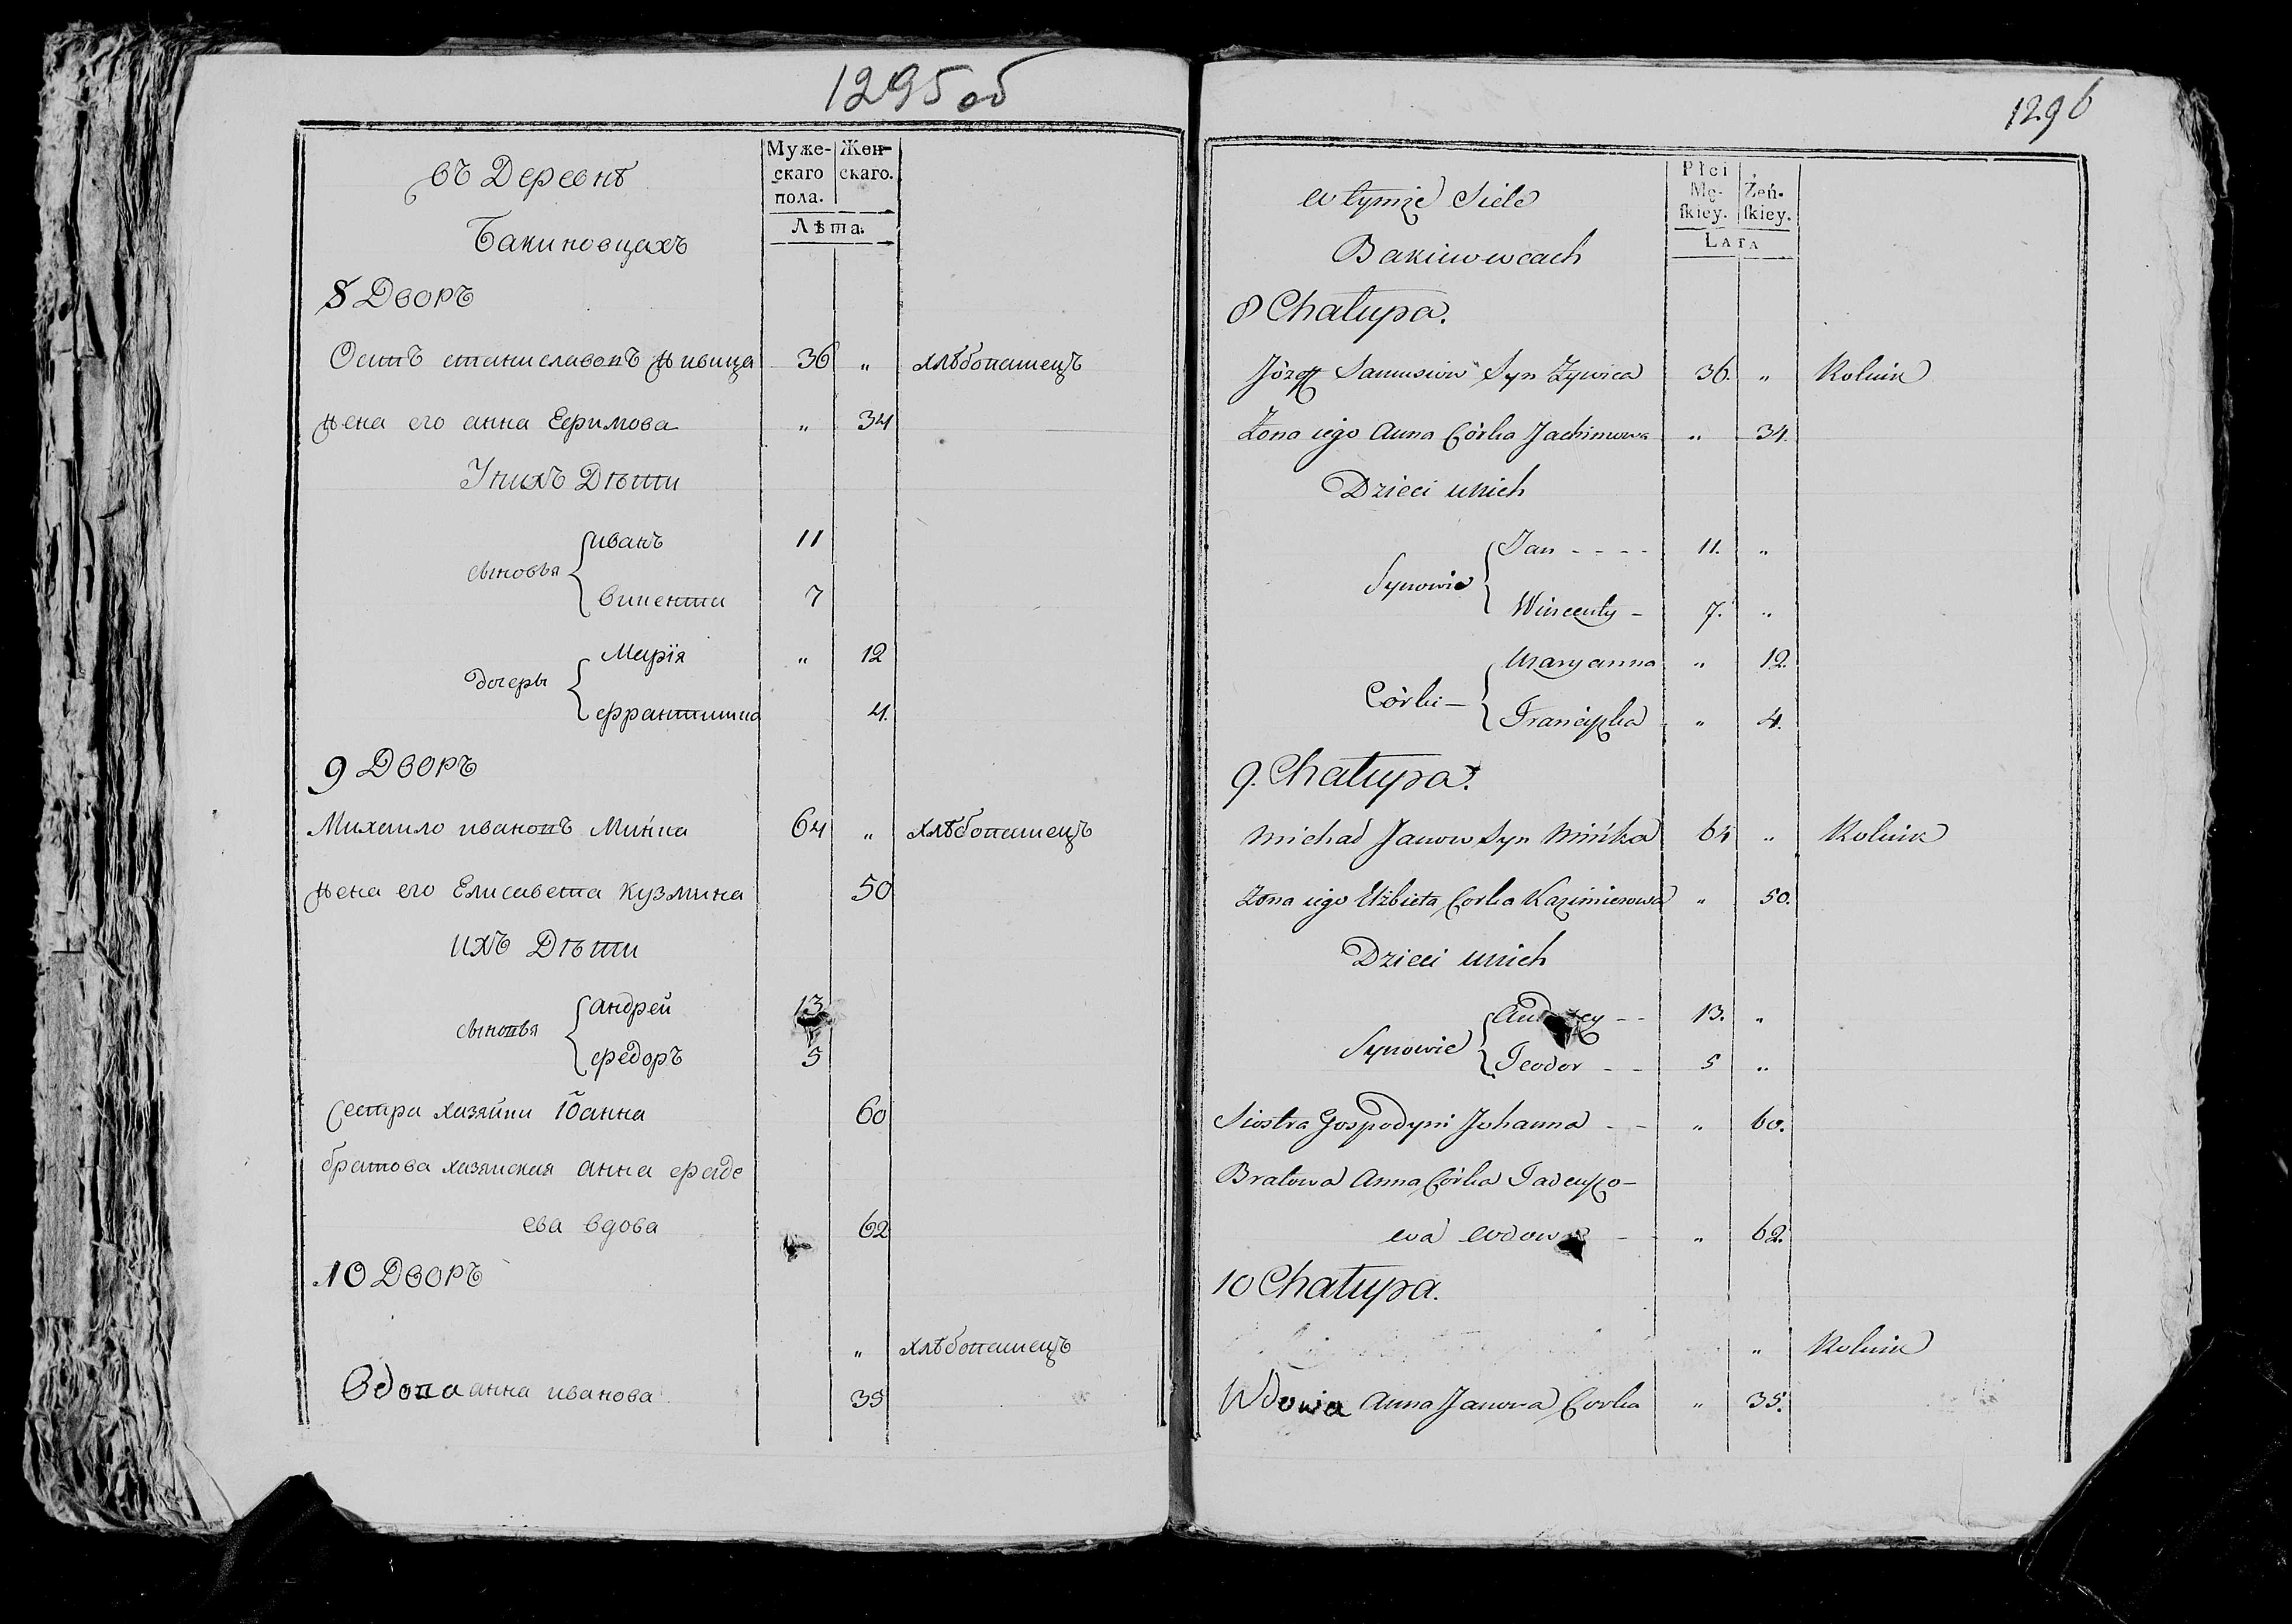 1295 об
въ Деревнѣ
Муже-
скаго
пола.
Жен-
скаго.
Бакиновцахъ
Лѣта.
8 Дворъ
Осипъ станиславовъ живица 36 „ хлѣбопашецъ
жена его анна Ефимова „ 34
У нихъ Дѣти
сыновья
иванъ 11
виненти 7
дочеры
Марїя „ 12
франтишка 4.
9 Дворъ
Михаило ивановъ Минка 64 „ хлѣбопашецъ
жена его Елисавета кузмина 50
ихъ Дѣти
сыновья
андрей 13
федоръ 5
Сестра хазяйки Iоанна 60
братова хазяиская анна фаде
ева вдова 62
10 Дворъ
„ хлѣбопашецъ
Вдова анна иванова 35
1296
w tymże Siele
Płci
Mę-
ſkiey.
Żeń-
ſkiey.
Bakinowcach
Lata
8 Chałupa.
Józef Syn Żywica 36. „ Rolnik
Żona iego Anna Córka Jachimowa „ 34.
Dzieci u nich
Synowie
Jan - - - - 11. „
Wincenty - 7. „
Córki -
Maryanna „ 12.
Franciszka „ 4.
9. Chałupa.
Michał Janow Syn Mińka 64 „ Rolnik
Żona iego Elżbieta Corka Kazimierowa „ 50.
Dzieci u nich
Synowie
Andrzey - - 13. „
Teodor - - 5 „
Siostra Gospodyni Johanna - - „ 60.
Bratowa Anna Córka Tadeuszo-
wa wdowa - „ 62.
10 Chałupa.
„ Rolnik
Wdowa Anna Janowa Corka „ 35.